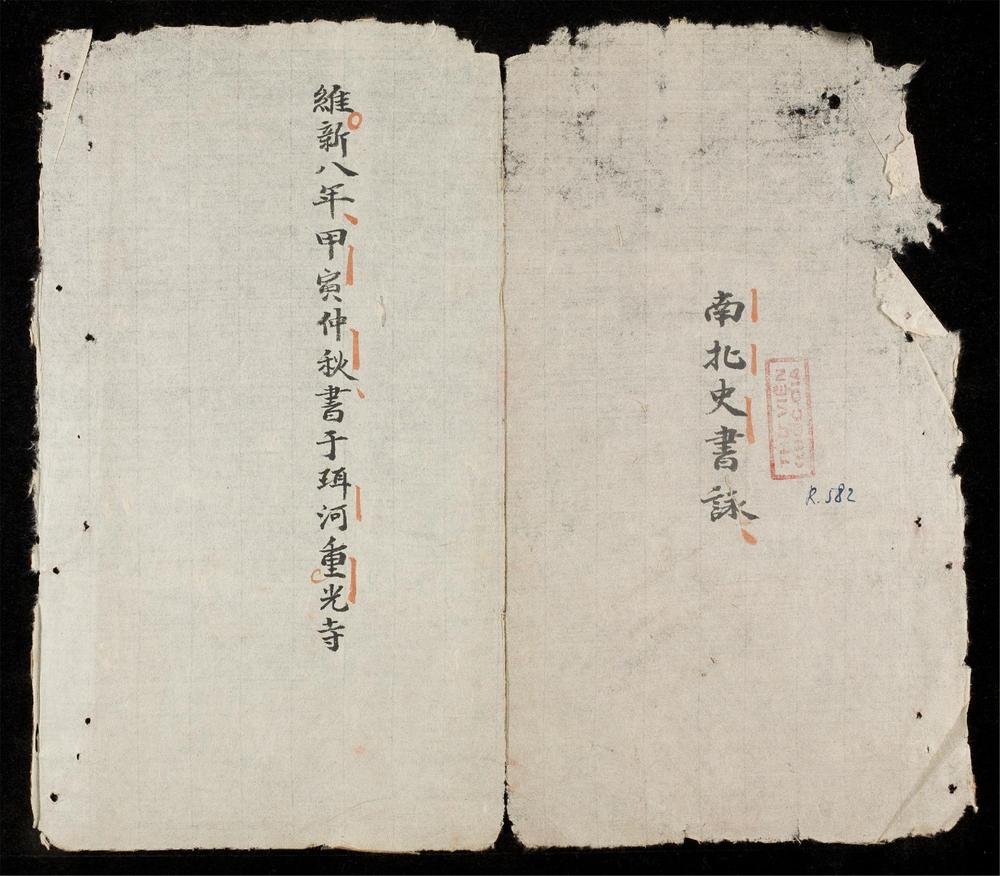 南北史書詠
THU VIEN
QUOC GIA
R.582
維新八年甲寅仲秋書于珥河重光寺